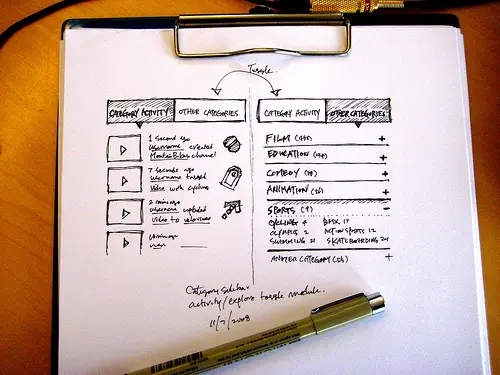 Toggle
CATEGORY ACTIVITY OTHER CATEGORIES
1 second ago
username created
Mountain Bikes channel
7 seconds ago
username tagged
video with cycling
2 mins ago
username uploaded
video to
CATEGORY ACTIVITY OTHER CATEGORIES
FILM +
EDUCATION +
COMEDY +
ANIMATION +
SPORTS (9) -
CYCLING 4 BMX 17
OLYMPICS 2 ACTION SPORTS 12
SWIMMING 21 SKATEBOARDING
ANOTHER CATEGORY +
Category sidebar
activity/explore toggle module.
11/7/2008